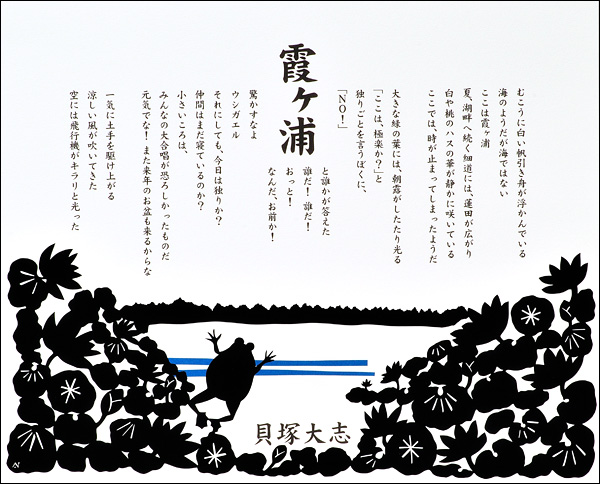 霞ヶ浦
むこうに白い帆引き舟が浮かんでいる
海のようだが海ではない
ここは霞ヶ浦
夏、湖畔へ続く細道には、蓮田が広がり
白や桃のハスの華が静かに咲いている
ここでは、時が止まってしまったようだ
大きな緑の葉には、朝露がしたたり光る
「ここは、極楽か?」と
独りごとを言うぼくに、
「NO!」
と誰かが答えた
誰だ!誰だ!
おっと!
なんだ、お前か!
驚かすなよ
ウシガエル
それにしても、今日は独りか?
仲間はまだ寝ているのか?
小さいころは、
みんなの大合唱が恐ろしかったものだ
元気でな!また来年のお盆も来るからな
一気に土手を駆け上がる
涼しい風が吹いてきた
空には飛行機がキラリと光った
貝塚大志